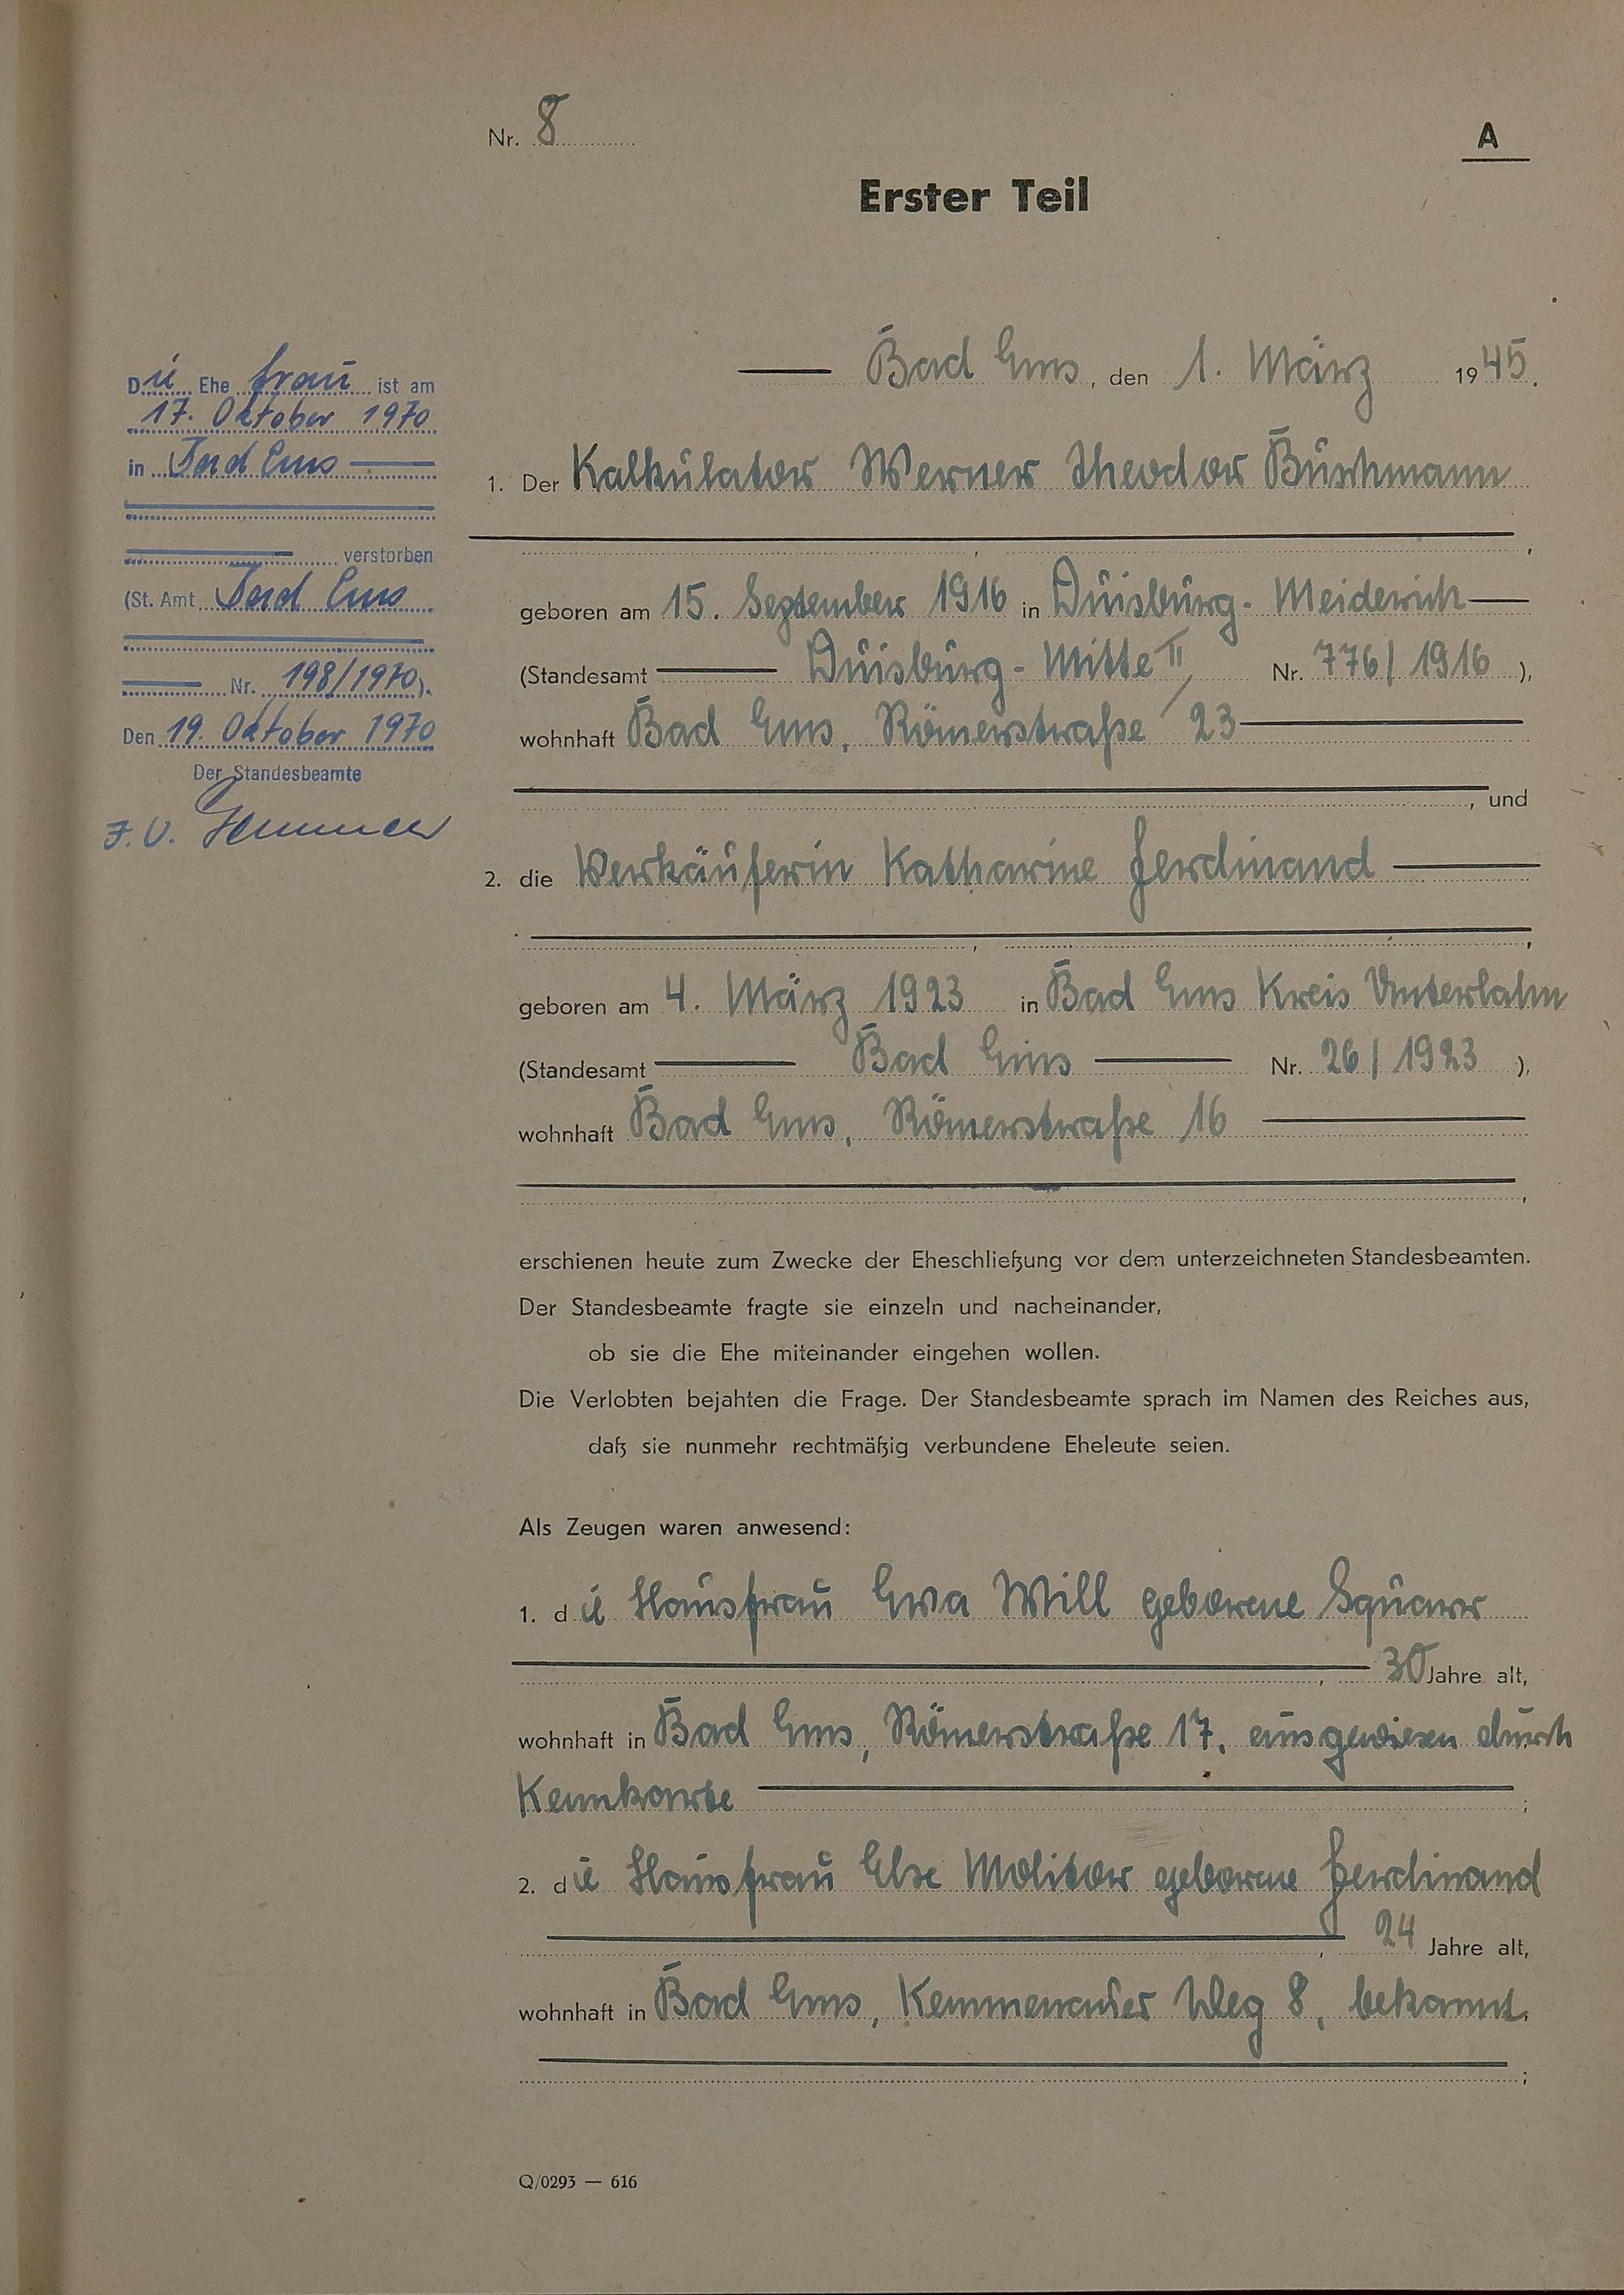 Nr. 8
A
Erster Teil
Bad Ems, den 1. März 1945.
1. Der Kalkulator Werner Theodor Buschmann
geboren am 15. September 1916 in Duisburg-Meiderich
(Standesamt Duisburg-Mitte II, Nr. 776/1916),
wohnhaft Bad Ems, Römerstraße 23
, und
2. die Verkäuferin Katharine Ferdinand
geboren am 4. März 1923 in Bad Ems Kreis Unterlahn
(Standesamt Bad Ems Nr. 26/1923),
wohnhaft Bad Ems, Römerstraße 16
erschienen heute zum Zwecke der Eheschließung vor dem unterzeichneten Standesbeamten.
Der Standesbeamte fragte sie einzeln und nacheinander,
ob sie die Ehe miteinander eingehen wollen.
Die Verlobten bejahten die Frage. Der Standesbeamte sprach im Namen des Reiches aus,
daß sie nunmehr rechtmäßig verbundene Eheleute seien.
Als Zeugen waren anwesend:
1. die Hausfrau Eva Will geborene Squarr
30 Jahre alt,
wohnhaft in Bad Ems, Römerstraße 17, ausgewiesen durch
Kennkarte ;
2. die Hausfrau Else Molitor geborene Ferdinand
, 24 Jahre alt,
wohnhaft in Bad Ems, Kemmenauer Weg 8, bekannt,
;
Q/0293 — 616
Die Ehefrau ist am
17. Oktober 1970
in Bad Ems
verstorben
(St. Amt Bad Ems
Nr. 198/1970).
Den 19. Oktober 1970
Der Standesbeamte
J. V.